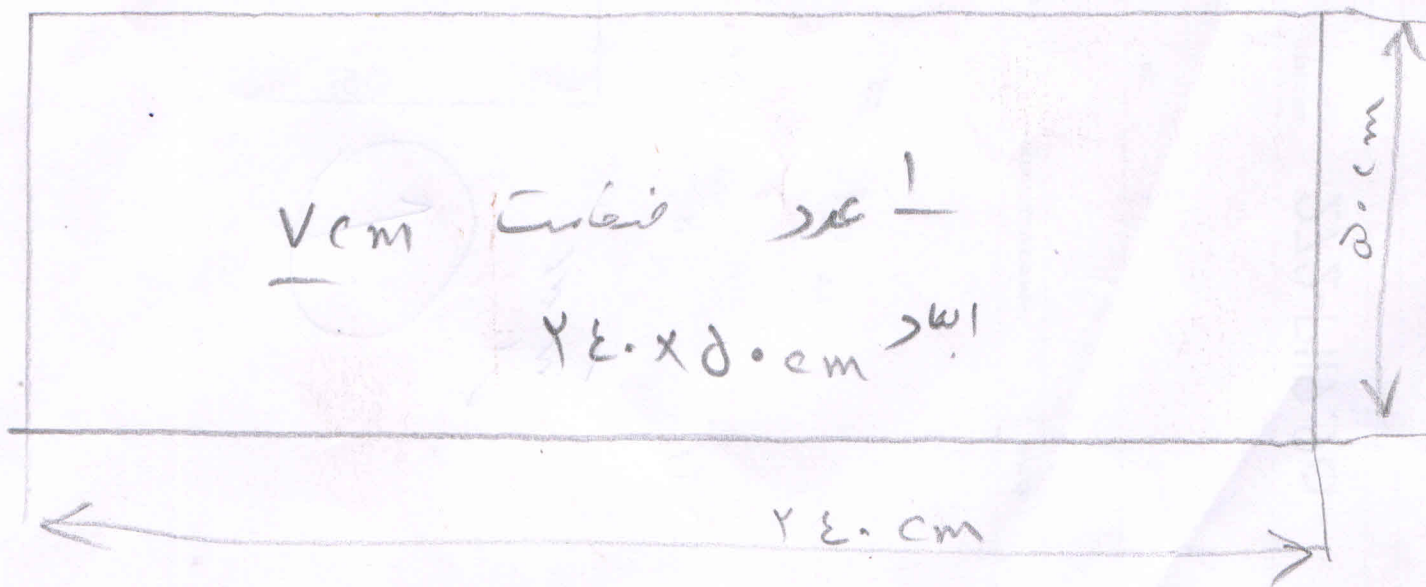 ۱ عدد ضخامت ۷cm
ابعاد ۲٤۰x۵۰cm
۵۰cm
۲٤۰cm